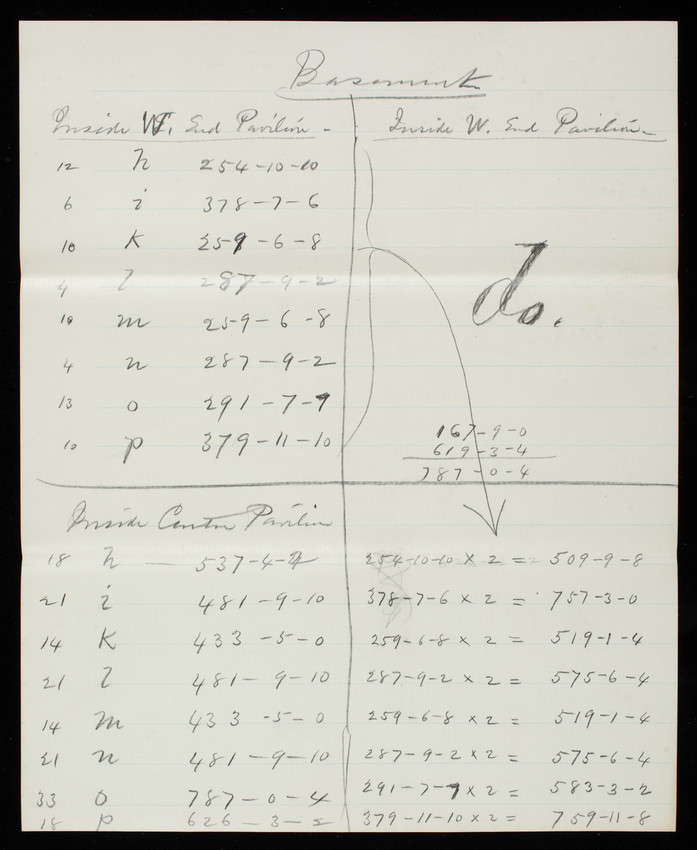 Basement
Inside W. End Pavilion -
12 h 254-10-10
6 i 378-7-6
10 K 259-6-8
4 l 287-9-2
10 m 259-6-8
4 n 287-9-2
13 o 291-7-9
10 p 379-11-10
Inside W. End Pavilion -
do.
167-9-0
619-3-4
787-0-4
Inside Center Pavilion
18 h — 537-4-2
21 i 481-9-10
14 K 433-5-0
21 l 481-9-10
14 m 433-5-0
21 n 481-9-10
33 o 787-0-4
18 p 626-3-2
254-10-10 x 2 = 509-9-8
378-7-6 x 2 = 757-3-0
259-6-8 x 2 = 519-1-4
287-9-2 x 2 = 575-6-4
259-6-8 x 2 = 519-1-4
287-9-2 x 2 = 575-6-4
291-7-9 x 2 = 583-3-2
379-11-10 x 2 = 759-11-8